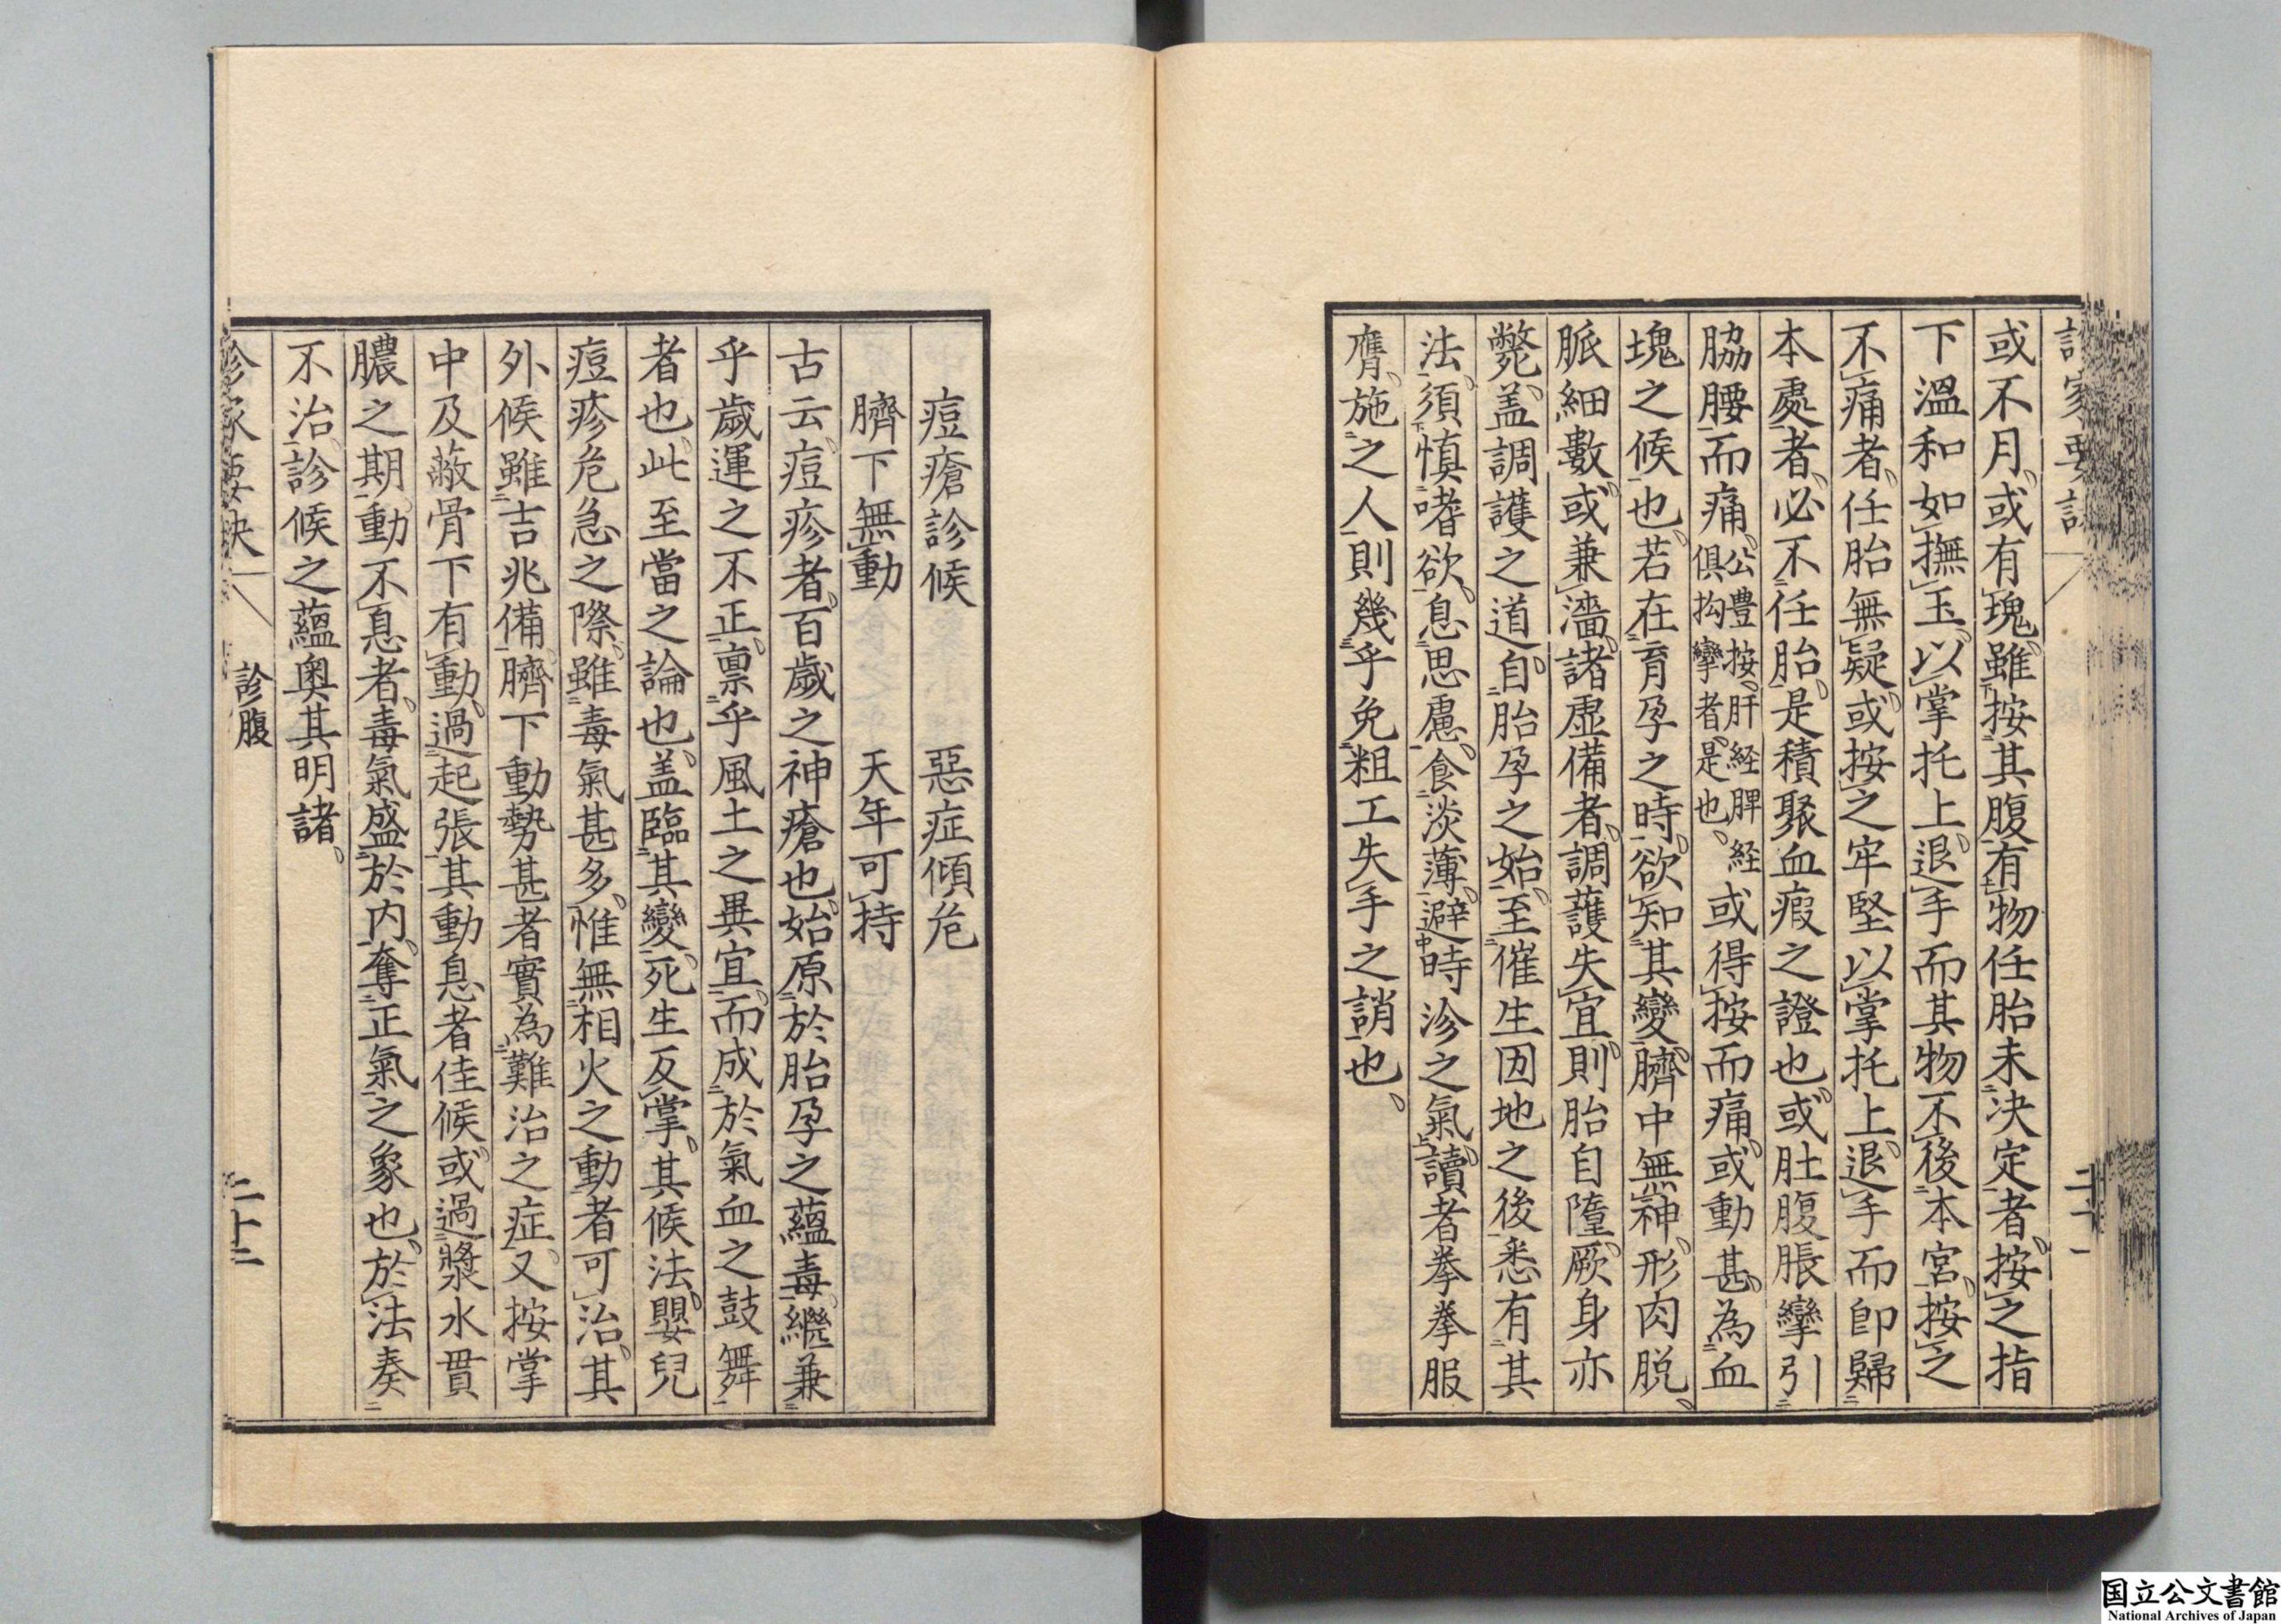 診家要訣
二十一
或不月、或有塊、雖按其腹有物任胎未決定者、按之指
下溫和如撫玉、以掌托上、退手而其物不後本宮、按之
不痛者、任胎無疑、或按之牢堅以掌托上、退手而即歸
本處者、必不任胎、是積聚血瘕之證也、或肚腹脹攣引
脇腰而痛、公豊按、肝経脾経俱拘攣者、是也、或得按而痛、或動甚、為血
塊之候也、若在育孕之時、欲知其變、臍中無神、形肉脱、
脈細數、或兼濇、諸虛備者、調護失宜、則胎自墮、厥身亦
斃、盖調護之道、自胎孕之始、至催生因地之後、悉有其
法、須慎嗜欲、息思慮、食淡薄、避時沴之氣、讀者拳拳服
膺、施之人則幾乎免粗工失手之誚也、
痘瘡診候　惡症傾危
臍下無動　天年可持
古云、痘疹者、百歲之神瘡也、始原於胎孕之蘊毒、繼兼
乎歲運之不正、禀乎風土之異宜、而成於氣血之鼓舞
者也、此至當之論也、盖臨其變、死生反掌、其候法、嬰兒
痘疹危急之際、雖毒氣甚多、惟無相火之動者可治、其
外候雖吉兆備、臍下動勢甚者實為難治之症、又按掌
中及蔽骨下有動、過起張其動息者佳候、或過漿水貫
膿之期、動不息者、毒氣盛於内、奪正氣之象也、於法奏
不治、診候之蘊奧其明諸、
診家要訣
診腹
二十二
国立公文書館
National Archives of Japan